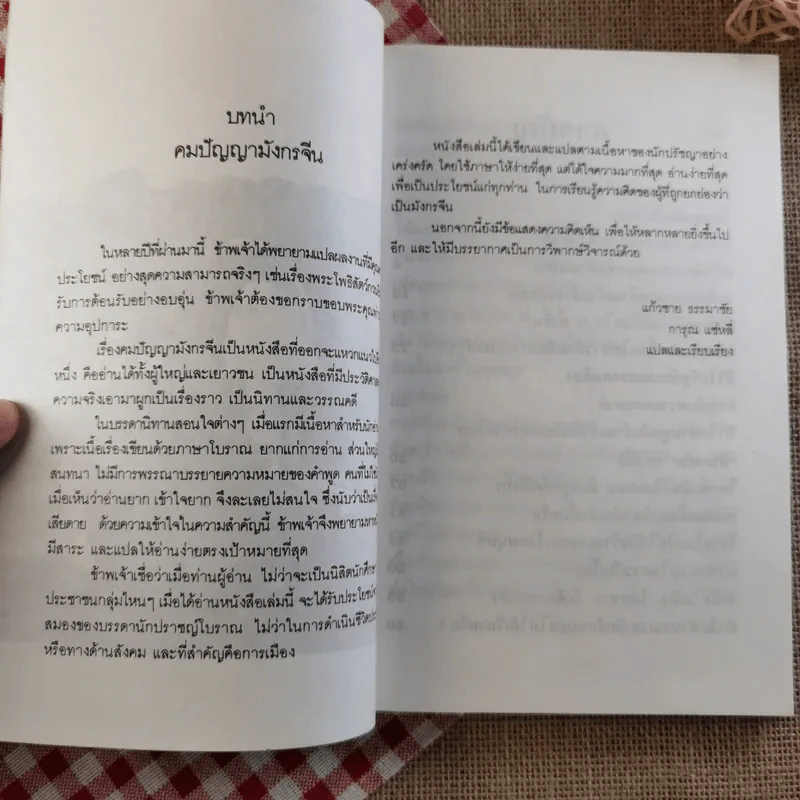 บทนำ
คมปัญญามังกรจีน
ในหลายปีที่ผ่านมานี้ ข้าพเจ้าได้พยายามแปลผลงานที่มี
ประโยชน์ อย่างสุดความสามารถจริงๆ เช่นเรื่องพระโพธิสัตว์
รับการต้อนรับอย่างอบอุ่น ข้าพเจ้าต้องขอกราบขอบพระคุณ
ความอุปการะ
เรื่องคมปัญญามังกรจีนเป็นหนังสือที่ออกจะแหวกแนว
หนึ่ง คืออ่านได้ทั้งผู้ใหญ่และเยาวชน เป็นหนังสือที่มีประวัติ
ความจริงเอามาผูกเป็นเรื่องราว เป็นนิทานและวรรณคดี
ในบรรดานิทานสอนใจต่างๆ เมื่อแรกมีเนื้อหาสำหรับ
เพราะเนื้อเรื่องเขียนด้วยภาษาโบราณ ยากแก่การอ่าน ส่วนใหญ่
สนทนา ไม่มีการพรรณาบรรยายความหมายของคำพูด คนที่
เมื่อเห็นว่าอ่านยาก เข้าใจยาก จึงละเลยไม่สนใจ ซึ่งนับว่าเป็น
เสียดาย ด้วยความเข้าใจในความสำคัญนี้ ข้าพเจ้าจึงพยายาม
มีสาระ และแปลให้อ่านง่ายตรงเป้าหมายที่สุด
ข้าพเจ้าเชื่อว่าเมื่อท่านผู้อ่าน ไม่ว่าจะเป็นนิสิตนักศึกษา
ประชาชนกลุ่มไหนๆ เมื่อได้อ่านหนังสือเล่มนี้ จะได้รับประโยชน์
สมองของบรรดานักปราชญ์โบราณ ไม่ว่าในการดำเนินชีวิต
หรือทางด้านสังคม และที่สำคัญคือการเมือง
หนังสือเล่มนี้ได้เขียนและแปลตามเนื้อหาของนักปรัชญาอย่าง
เคร่งครัด โดยใช้ภาษาให้ง่ายที่สุด แต่ได้ใจความมากที่สุด อ่านง่ายที่สุด
เพื่อเป็นประโยชน์แก่ทุกท่าน ในการเรียนรู้ความคิดของผู้ที่ถูกยกย่องว่า
เป็นมังกรจีน
นอกจากนี้ยังมีข้อแสดงความคิดเห็น เพื่อให้หลากหลายยิ่งขึ้นไป
อีก และให้มีบรรยากาศเป็นการวิพากษ์วิจารณ์ด้วย
แก้วชาย ธรรมาชัย
การุณ แซ่หลี่
แปลและเรียบเรียง